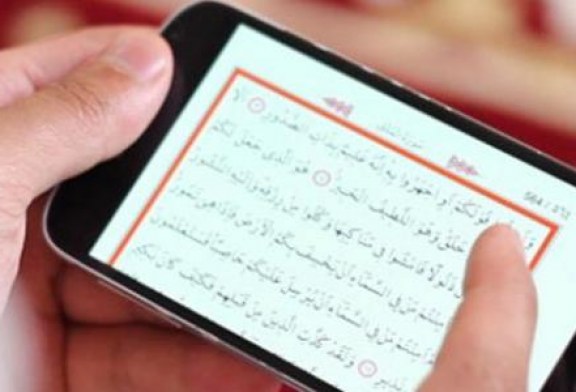 سورة الملك
قَوْلَكُمْ أَوِ اجْهَرُوا بِهِ إِنَّهُ عَلِيمٌ بِذَاتِ الصُّدُورِ أَلَا
خَلَقَ وَهُوَ اللَّطِيفُ الْخَبِيرُ هُوَ الَّذِي جَعَلَ لَكُمُ
ذَلُولًا فَامْشُوا فِي مَنَاكِبِهَا وَكُلُوا مِن رِّزْقِهِ وَإِلَيْهِ النُّشُورُ
مَّن فِي السَّمَاءِ أَن يَخْسِفَ بِكُمُ الْأَرْضَ فَإِذَا هِيَ تَمُورُ
أَمِنتُم مَّن فِي السَّمَاءِ أَن يُرْسِلَ عَلَيْكُمْ حَاصِبًا فَسَتَعْلَمُونَ
وَلَقَدْ كَذَّبَ الَّذِينَ مِن قَبْلِهِمْ فَكَيْفَ كَانَ نَكِيرِ